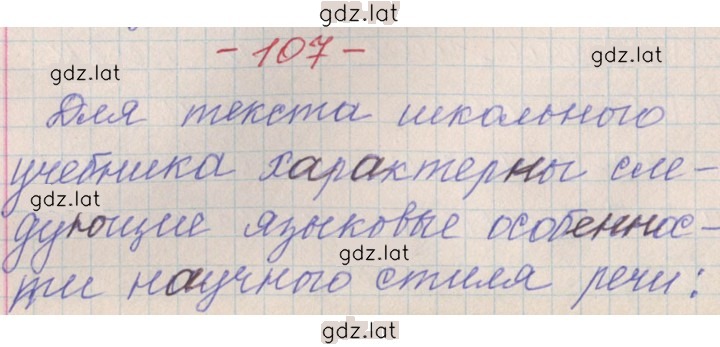 gdz.lat
- 107 -
gdz.lat
gdz.lat
Для текста школьного
учебника характерны сле-
gdz.lat
дующие языковые особеннос-
gdz.lat
ти научного стиля речи:
gdz.lat